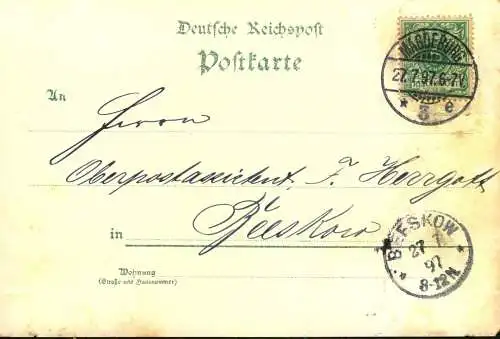 Deutsche Reichspost
Postkarte
MAGDEBURG
27.7.97.6-7V.
* 3 e
An
Herrn
Oberpostassistent F. Herrgott
in Beeskow
BEESKOW
27 7
97
8-12N.
Wohnung
(Straße und Hausnummer)